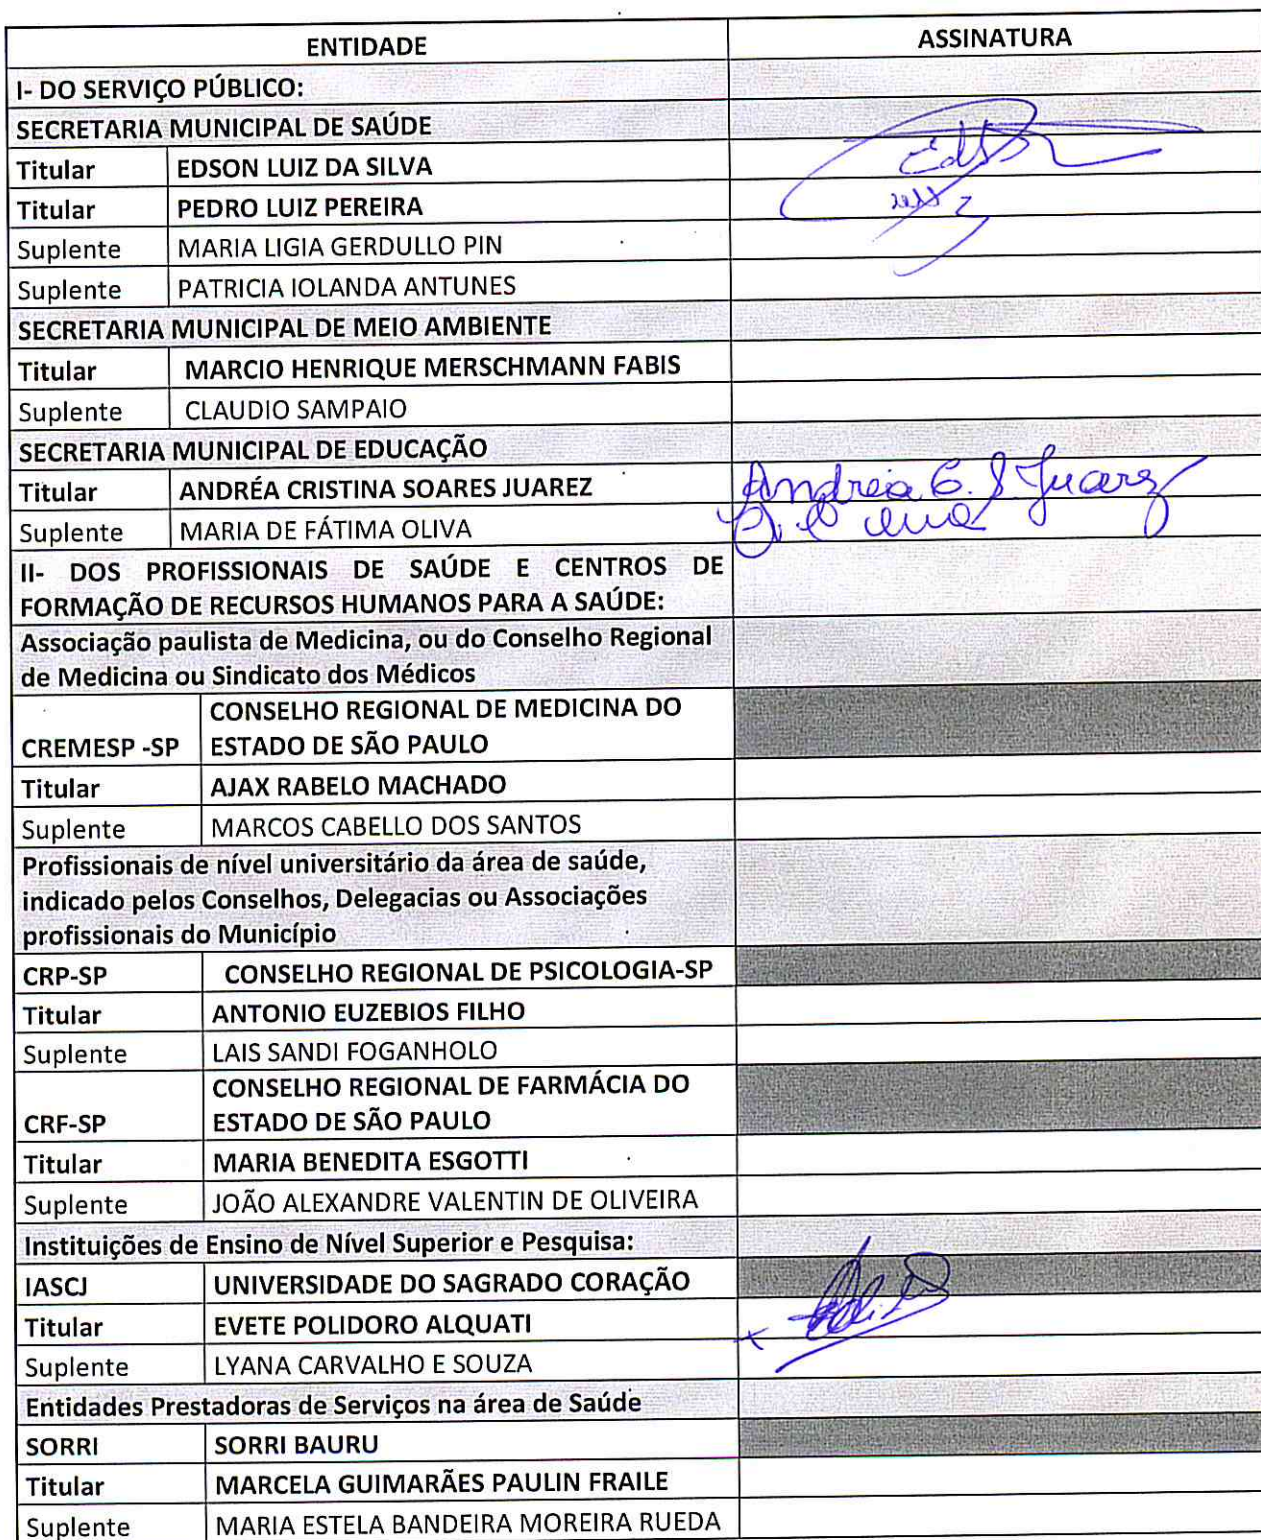 ENTIDADE ASSINATURA
I- DO SERVIÇO PÚBLICO:
SECRETARIA MUNICIPAL DE SAÚDE
Titular EDSON LUIZ DA SILVA
Titular PEDRO LUIZ PEREIRA
Suplente MARIA LIGIA GERDULLO PIN
Suplente PATRICIA IOLANDA ANTUNES
SECRETARIA MUNICIPAL DE MEIO AMBIENTE
Titular MARCIO HENRIQUE MERSCHMANN FABIS
Suplente CLAUDIO SAMPAIO
SECRETARIA MUNICIPAL DE EDUCAÇÃO
Titular ANDRÉA CRISTINA SOARES JUAREZ Andréia C. S Juarez
Suplente MARIA DE FÁTIMA OLIVA
II- DOS PROFISSIONAIS DE SAÚDE E CENTROS DE
FORMAÇÃO DE RECURSOS HUMANOS PARA A SAÚDE:
Associação paulista de Medicina, ou do Conselho Regional
de Medicina ou Sindicato dos Médicos
CONSELHO REGIONAL DE MEDICINA DO
CREMESP -SP ESTADO DE SÃO PAULO
Titular AJAX RABELO MACHADO
Suplente MARCOS CABELLO DOS SANTOS
Profissionais de nível universitário da área de saúde,
indicado pelos Conselhos, Delegacias ou Associações
profissionais do Município
CRP-SP CONSELHO REGIONAL DE PSICOLOGIA-SP
Titular ANTONIO EUZEBIOS FILHO
Suplente LAIS SANDI FOGANHOLO
CONSELHO REGIONAL DE FARMÁCIA DO
CRF-SP ESTADO DE SÃO PAULO
Titular MARIA BENEDITA ESGOTTI
Suplente JOÃO ALEXANDRE VALENTIN DE OLIVEIRA
Instituições de Ensino de Nível Superior e Pesquisa:
IASCJ UNIVERSIDADE DO SAGRADO CORAÇÃO
Titular EVETE POLIDORO ALQUATI
Suplente LYANA CARVALHO E SOUZA
Entidades Prestadoras de Serviços na área de Saúde
SORRI SORRI BAURU
Titular MARCELA GUIMARÃES PAULIN FRAILE
Suplente MARIA ESTELA BANDEIRA MOREIRA RUEDA